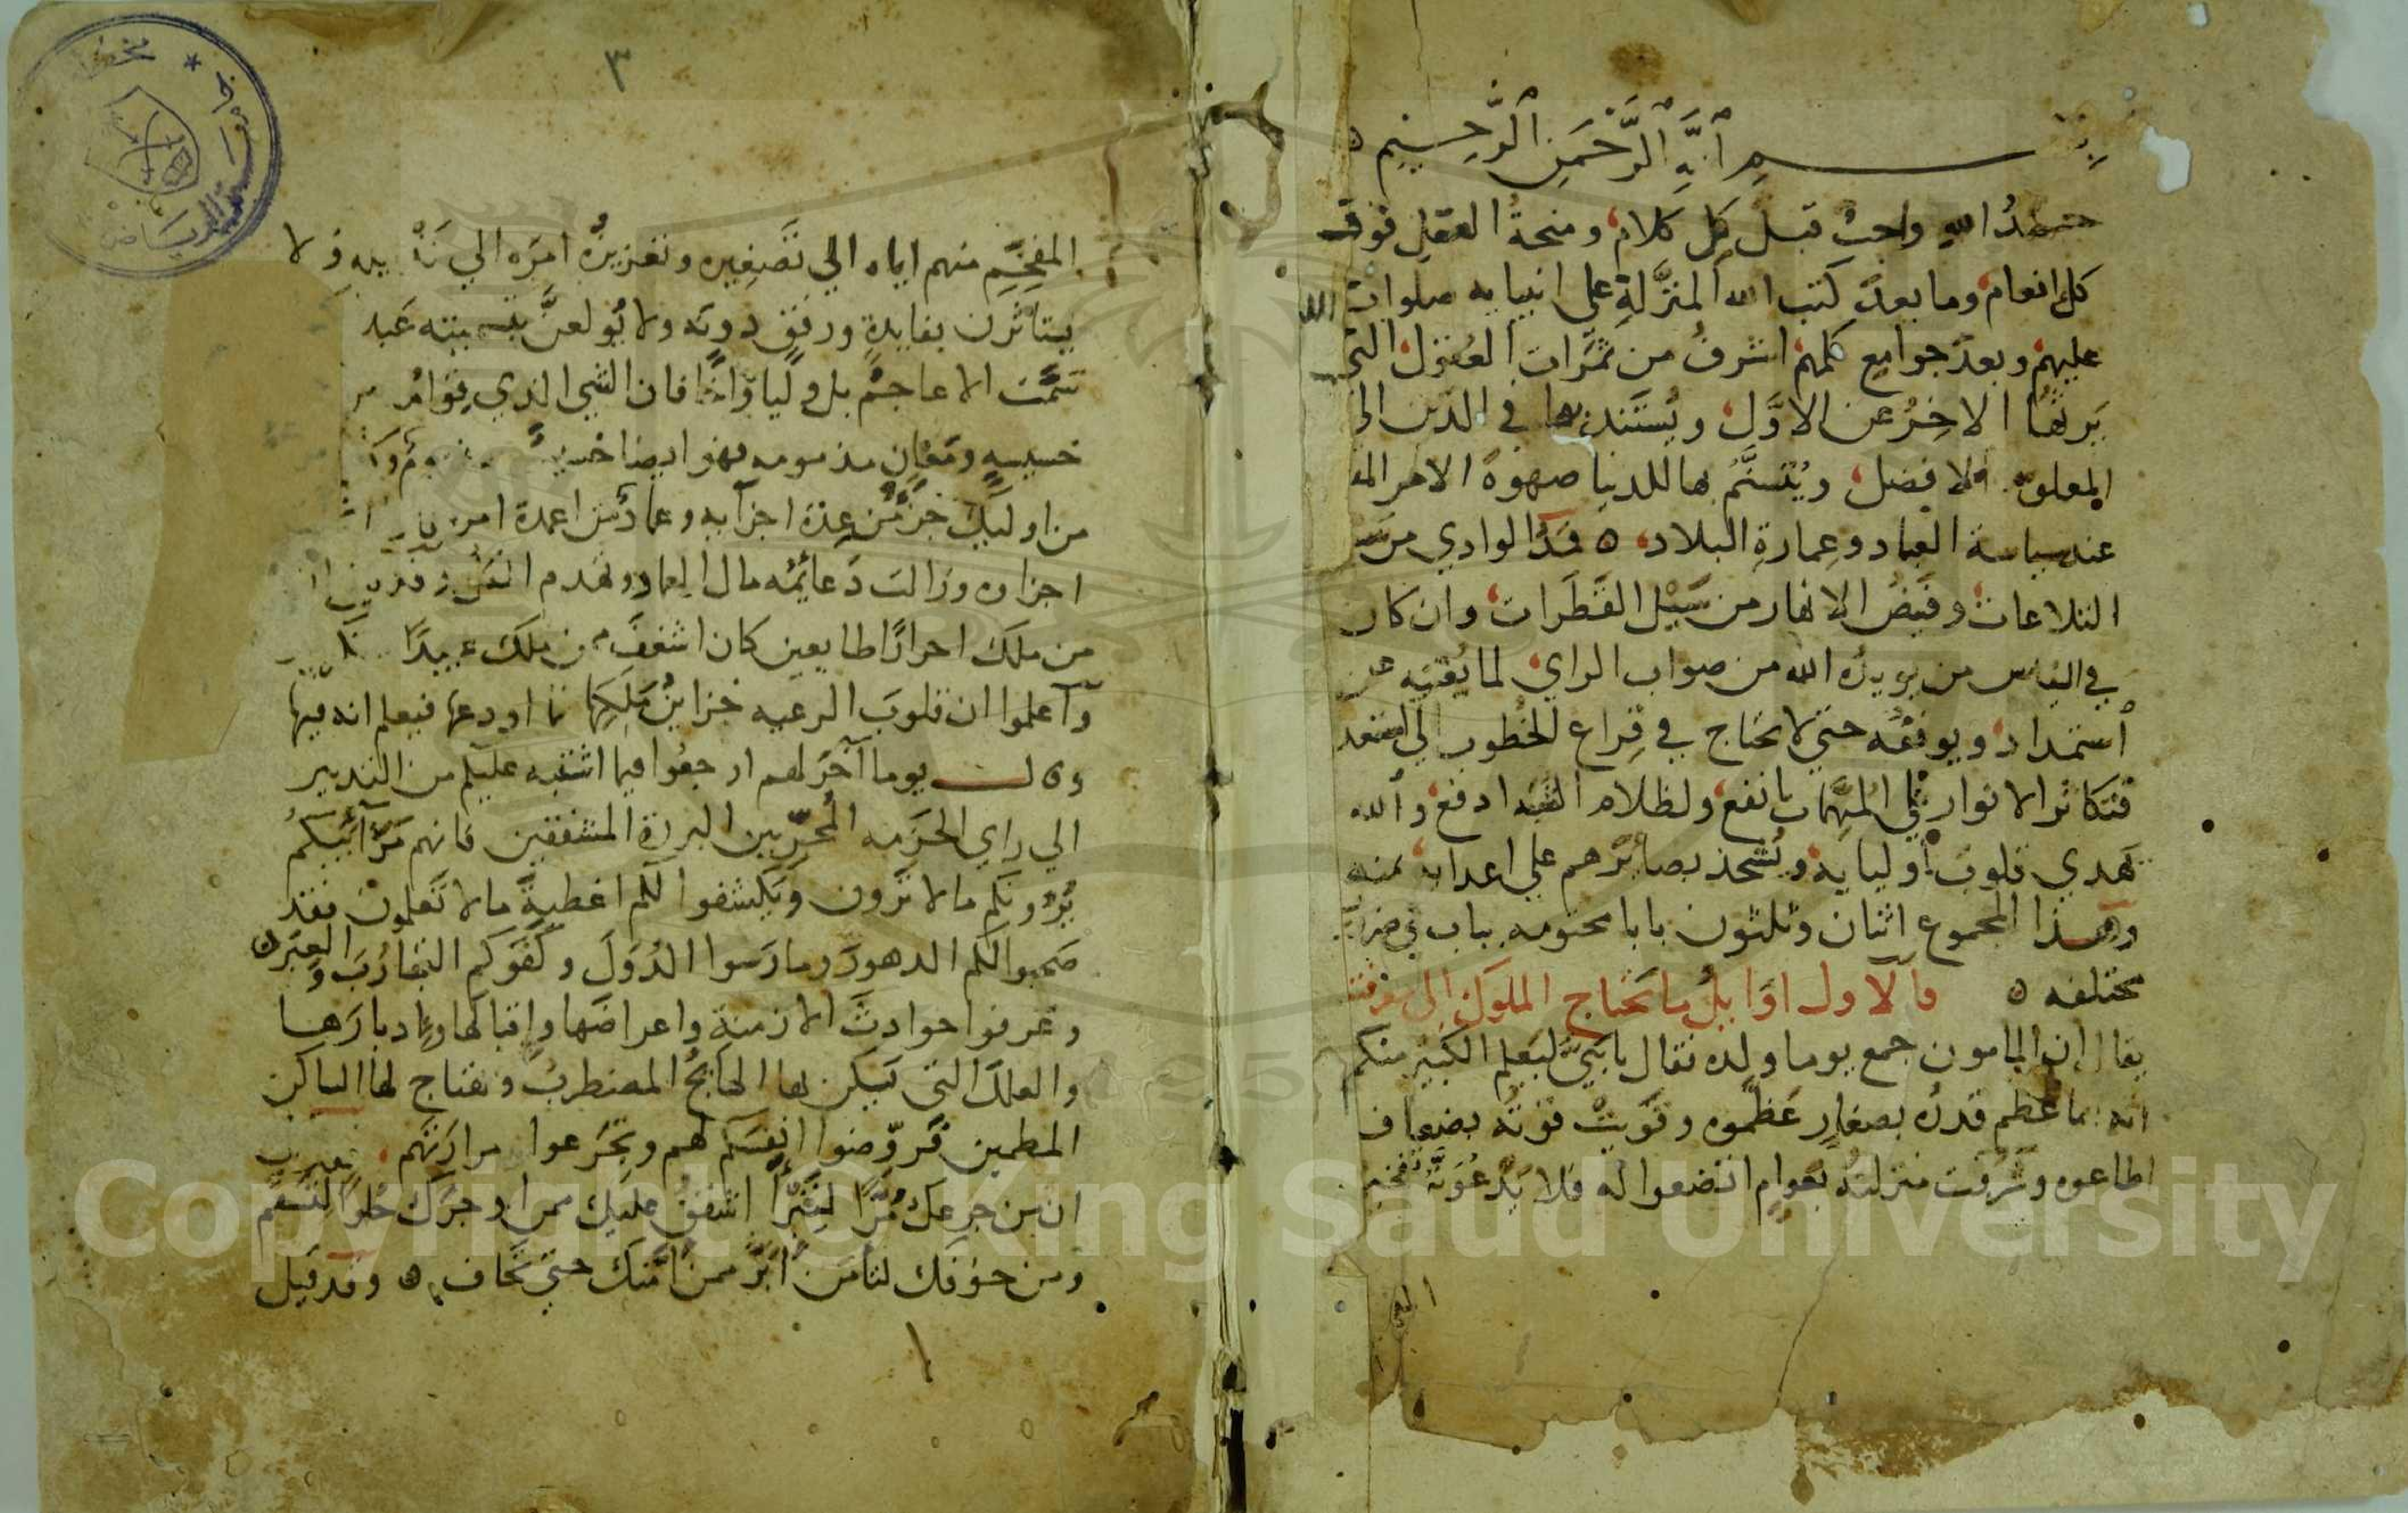 بسم الله الرحمن الرحيم
حمدُ الله واجبٌ قبل كل كلام، ومنحة العقل فوق
كل انعام، وما بعد كتب الله المنزَّلةِ على انبيايه صلوات الله
عليهم وبعد جوامع كلمهم اشرفُ من ثمَرات العقول التي
يَرِثُها الاخِرُ عن الاوَّل، ويُستَند بها في الدين الي
المعلوة والافضل، ويُتسنَّمُ بها للدنيا صهوة الامر
عند سياسة العباد وعِمارةِ البلاد، ٥ فمَدُّ الوادي من
التلاعات، وفَيضُ الانهار من سَيْل القَطَرات، وان كان
في الناس من يويده الله من صواب الراي، لما يُغنيه عن
استمداد، ويوفقه حتى لا يحتاج في قِراع الخطوب الي
فتكاثر الانوار في المهمّات انفع، ولظلام الشبه ادفع، والله
يَهدي قلوب اوليايه، ويُشحذ بصائرهم على اعدائه بمنه
وهذا المجموع اثنان وثلثون بابا مختومه بباب في
مختلفه ٥ فالاول اوايل ما يحتاج الملوك الى معرفته
يقال إن المامون جمع يوما ولده فقال يا بَنيَّ ليَعلم الكبير منكم
انه انما عظم قدرُه بصغارٍ عَظَّموه وقَوِيَتْ قوته بضعاف
اطاعوه وشَرُفت منزلته بعوام اتضعوا له فلا يَدْعُوَنَّهُ تفخيم
المفخِّمِ
٣
المفخِّمِ منهم اياه الي تَصغيره وتعزيزُه امرَه الي تذليله ولا
يستاثرن بفايدةٍ ورفقٍ دونَه ولا يُولعنَّ بتسميته عَبد
تسمَّت الاعاجمُ بل وليًا واخًا فان الشي الذي قِوامُه
خسيسةٍ ومَعانٍ مذمومه فهو ايضا خسيسٌ مذموم و
من اوليك جُزءٌ من عدة اجزآيه وعمادٌ من اعمدة امره
اجزاوه وزالت دَعائمُه مال العماد وتهدم
من ملك احرارًا طايعين كان اشفَّ ممن ملك عبيدًا
وآعلموا ان قلوبَ الرعيه خزاينُ مَلِكِها فما اودعها فيعلم انه فيها
وقال يوما آخرَ لهم ارجعُوا فيما اشتبه عليكم من التدبير
الي راي الحَزَمه المُجرّبين البررة المشفقين فانهم مَرَآئيكمُ
يُرُونكم ما لا تَرون ويكشفوا لكم اغطيةَ ما لا تَعلمون فقد
صَحبوا لكم الدهورَ ومارَسوا الدُوَلَ وكفَوكم التجارُبَ والعِبَر ٥
وعَرفوا حوادثَ الازمنةِ واعراضَها وإقبالَها وإدبارَها
والعلل التي يَسكن بها الهائجُ المضطربُ ويهتاج لها الساكن
المطمين فَروِّضوا انفسَكم لهم وتجَرعوا مرارَتهم
ان من جرعك مُرًّا لِتَبْرَأ اشفقُ عليك ممن اوجرَك حُلوًا لتسقمَ
ومن خوّفك لتأمَنَ أبَرُّ ممن أمَّنك حتي تخاف ٥ وقد قيل
Copyright © King Saud University
1957